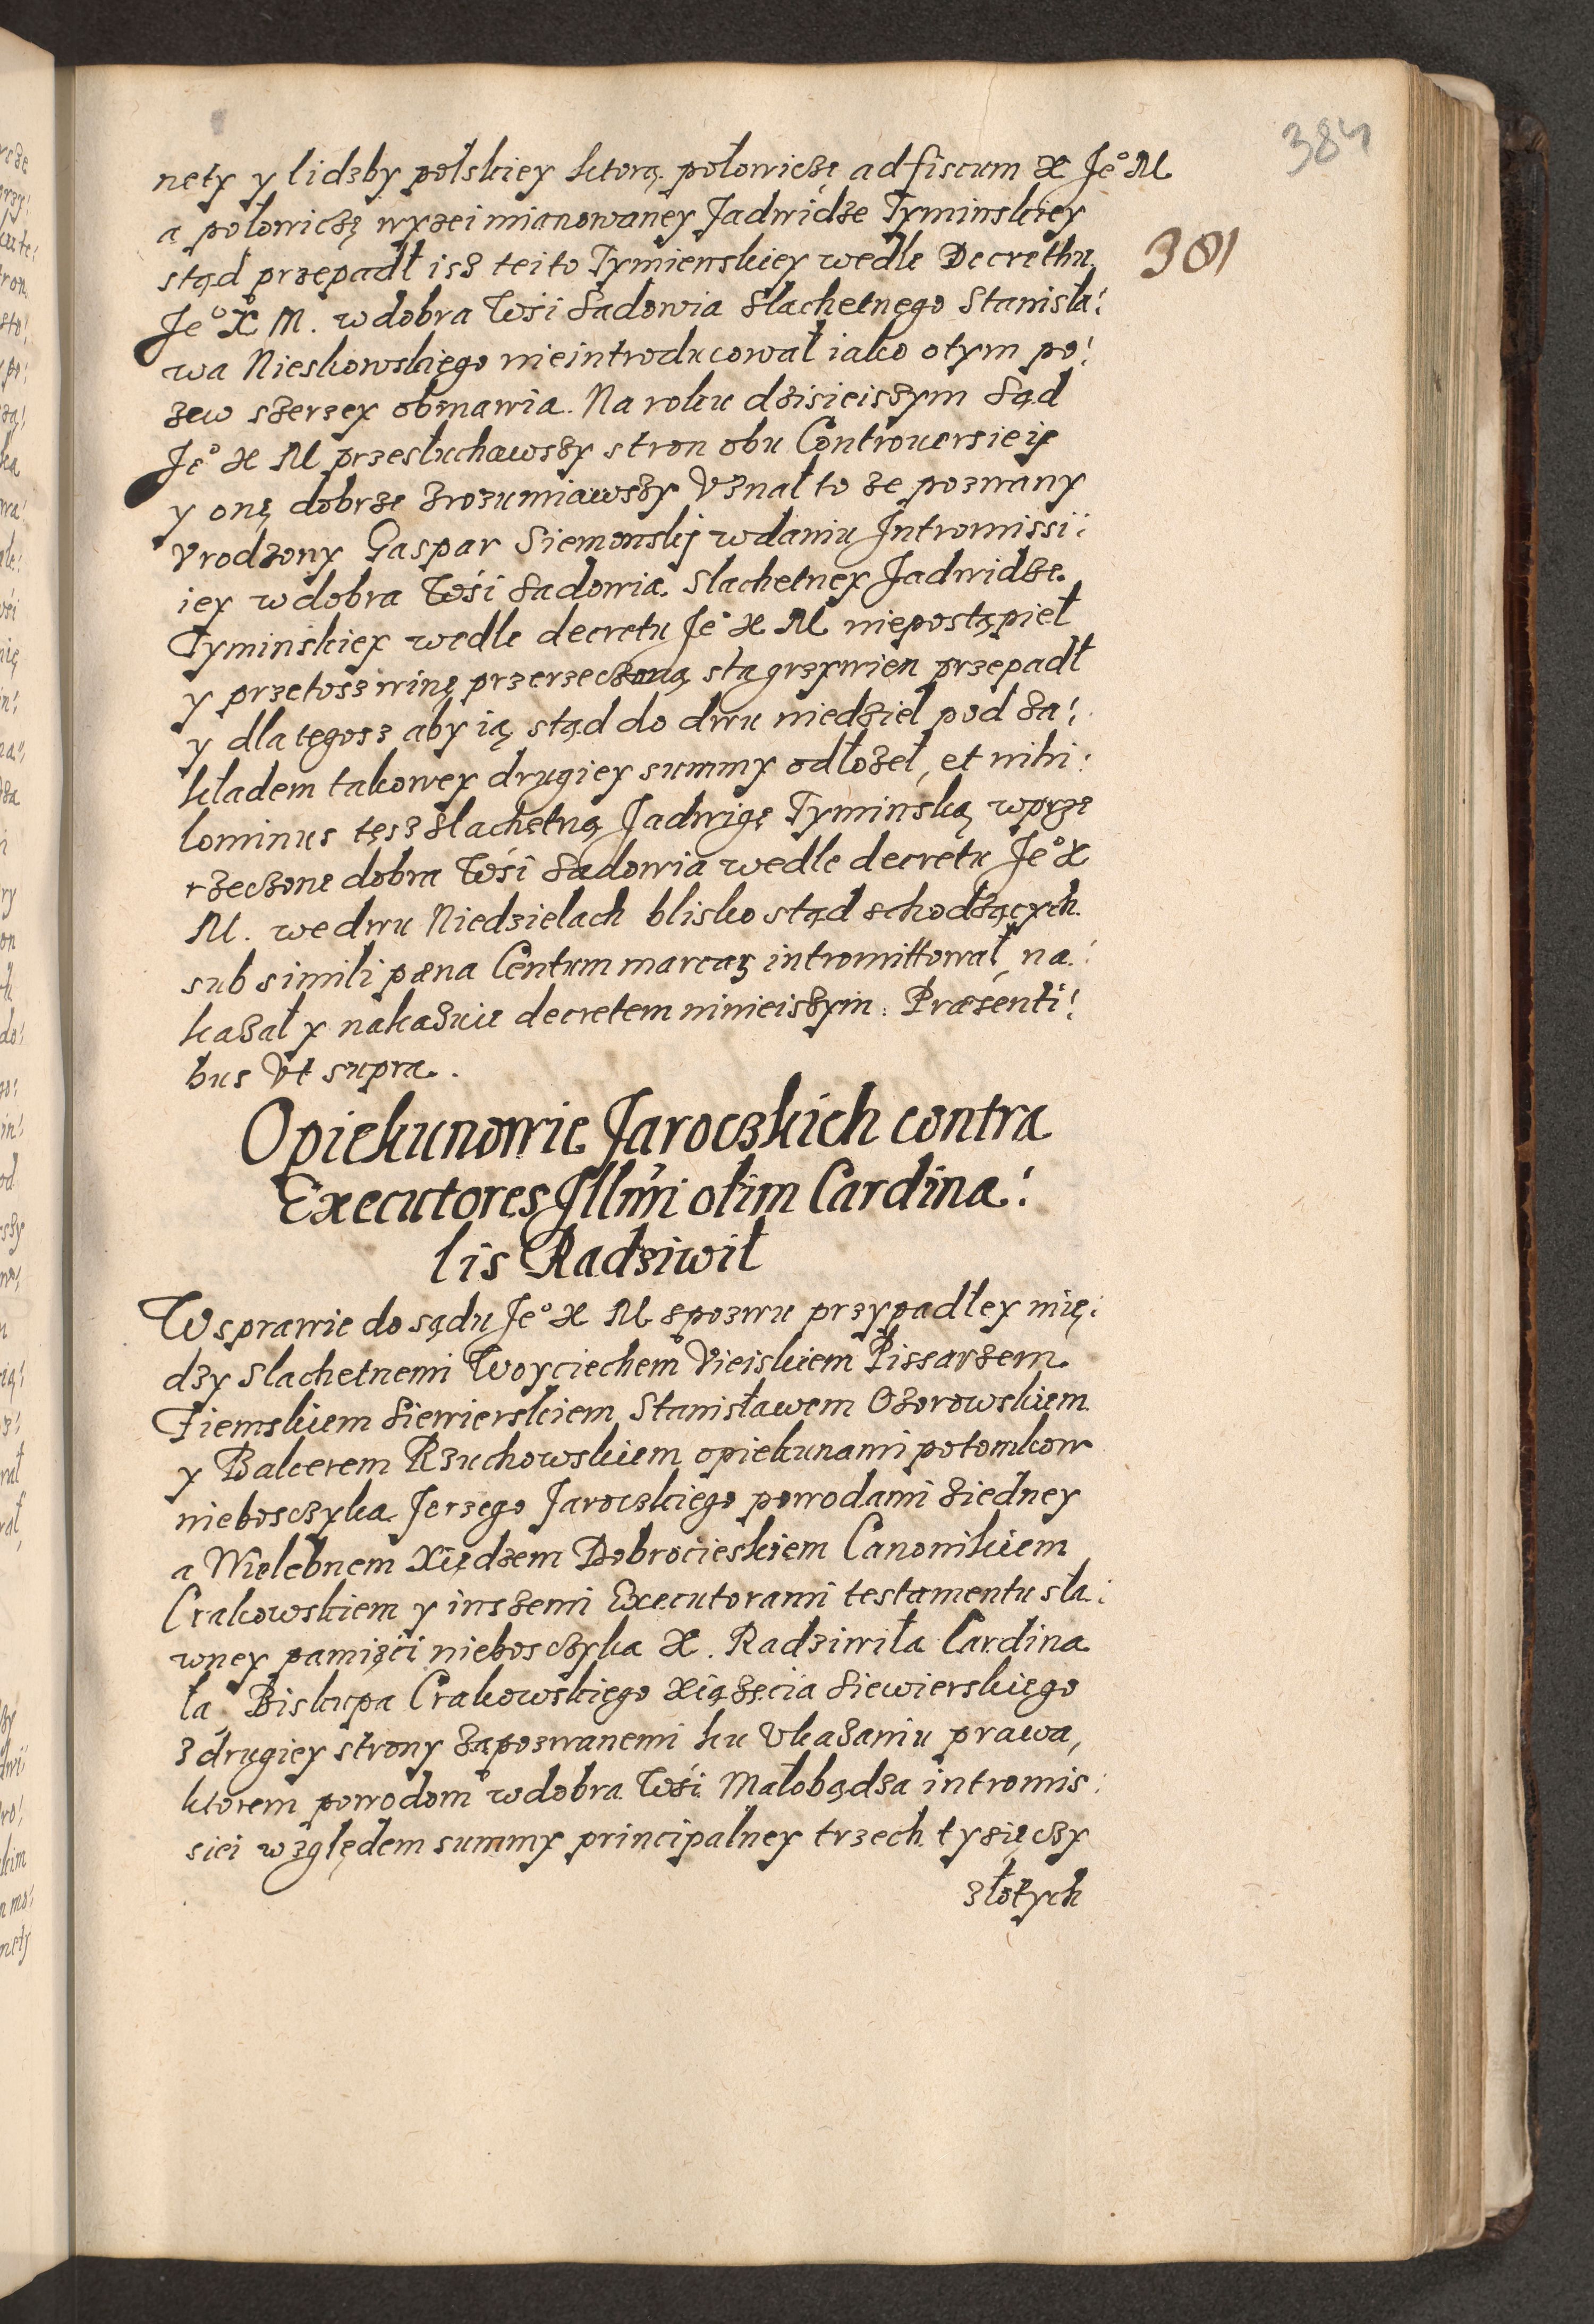 384
nety y lidzby polskiey ktorą połowiczę ad fiscum X Je° M
a połowiczę wyzei mianowaney Jadwidze Tyminskiey
381
stąd przepadł isz teito Tymienskiey wedle Decrethu
Je° X M. w dobra Wśi Sadowia Slachetnęgo Stanisła:
wa Nieskowskięgo nieintroducował iako otym po:
zew szerzey obmawia. Na roku dzisieiszym Sąd
Je° X M przesłuchawszy stron obu Controuersie iẏ
y onę dobrze zrozumiawszy Vznał to ze pozwany
Vrodzony Gaspar Siemonskį w daniu Intromissii:
iey w dobra Wśi Sadowia Slachetney Jadwidze
Tyminskiey wedle decretu Je° X M niepostąpieł
y przetosz winę przerzeczoną sta grzywien przepadł
y dla tęgosz aby ią stąd do dwu niedziel pod za:
kładem takowey drugiey summy odłozeł, et nihi:
lominus tęsz Slachętną Jadwigę Tyminską w prze
rzeczone dobra Wśi Sadowia wedle decretu Je° X
M. we dwu Niedzielach blisko stąd schodzących
sub simili pœna Centum marcaȝ intromittował, na:
kazał y nakazuie decretem ninieiszym. Præsenti:
bus Vt supra.
Opiekunowie Jaroczkich contra
Executores Jllmi olim Cardina:
lis Radziwił
W sprawie do sądu Je° X M z pozwu przypadłey mię:
dzy Slachetnemi Woyciechem Vieiskiem Pissarzem
Ziemskiem Siewierskiem Stanisławem Ozorowskiem
y Balcerem Rzuchowskiem opiekunami potomkow
nieboszczyka Jerzego Jaroczkiego powodami ziedney
a Wielebnem Xiędzem Dobrocieskiem Canonikiem
Crakowskiem y inszemi Executorami testamentu sła:
wney pamięći nieboszczyka X. Radziwiła Cardina
ła Biskupa Crakowskięgo Xiązęcia Siewierskiego
z drugiey strony zapozwanemi ku Vkazaniu prawa,
ktorem powodom w dobra Wśi Małobądza intromis:
siei względem summy principalney trzech tysięczy
złotych